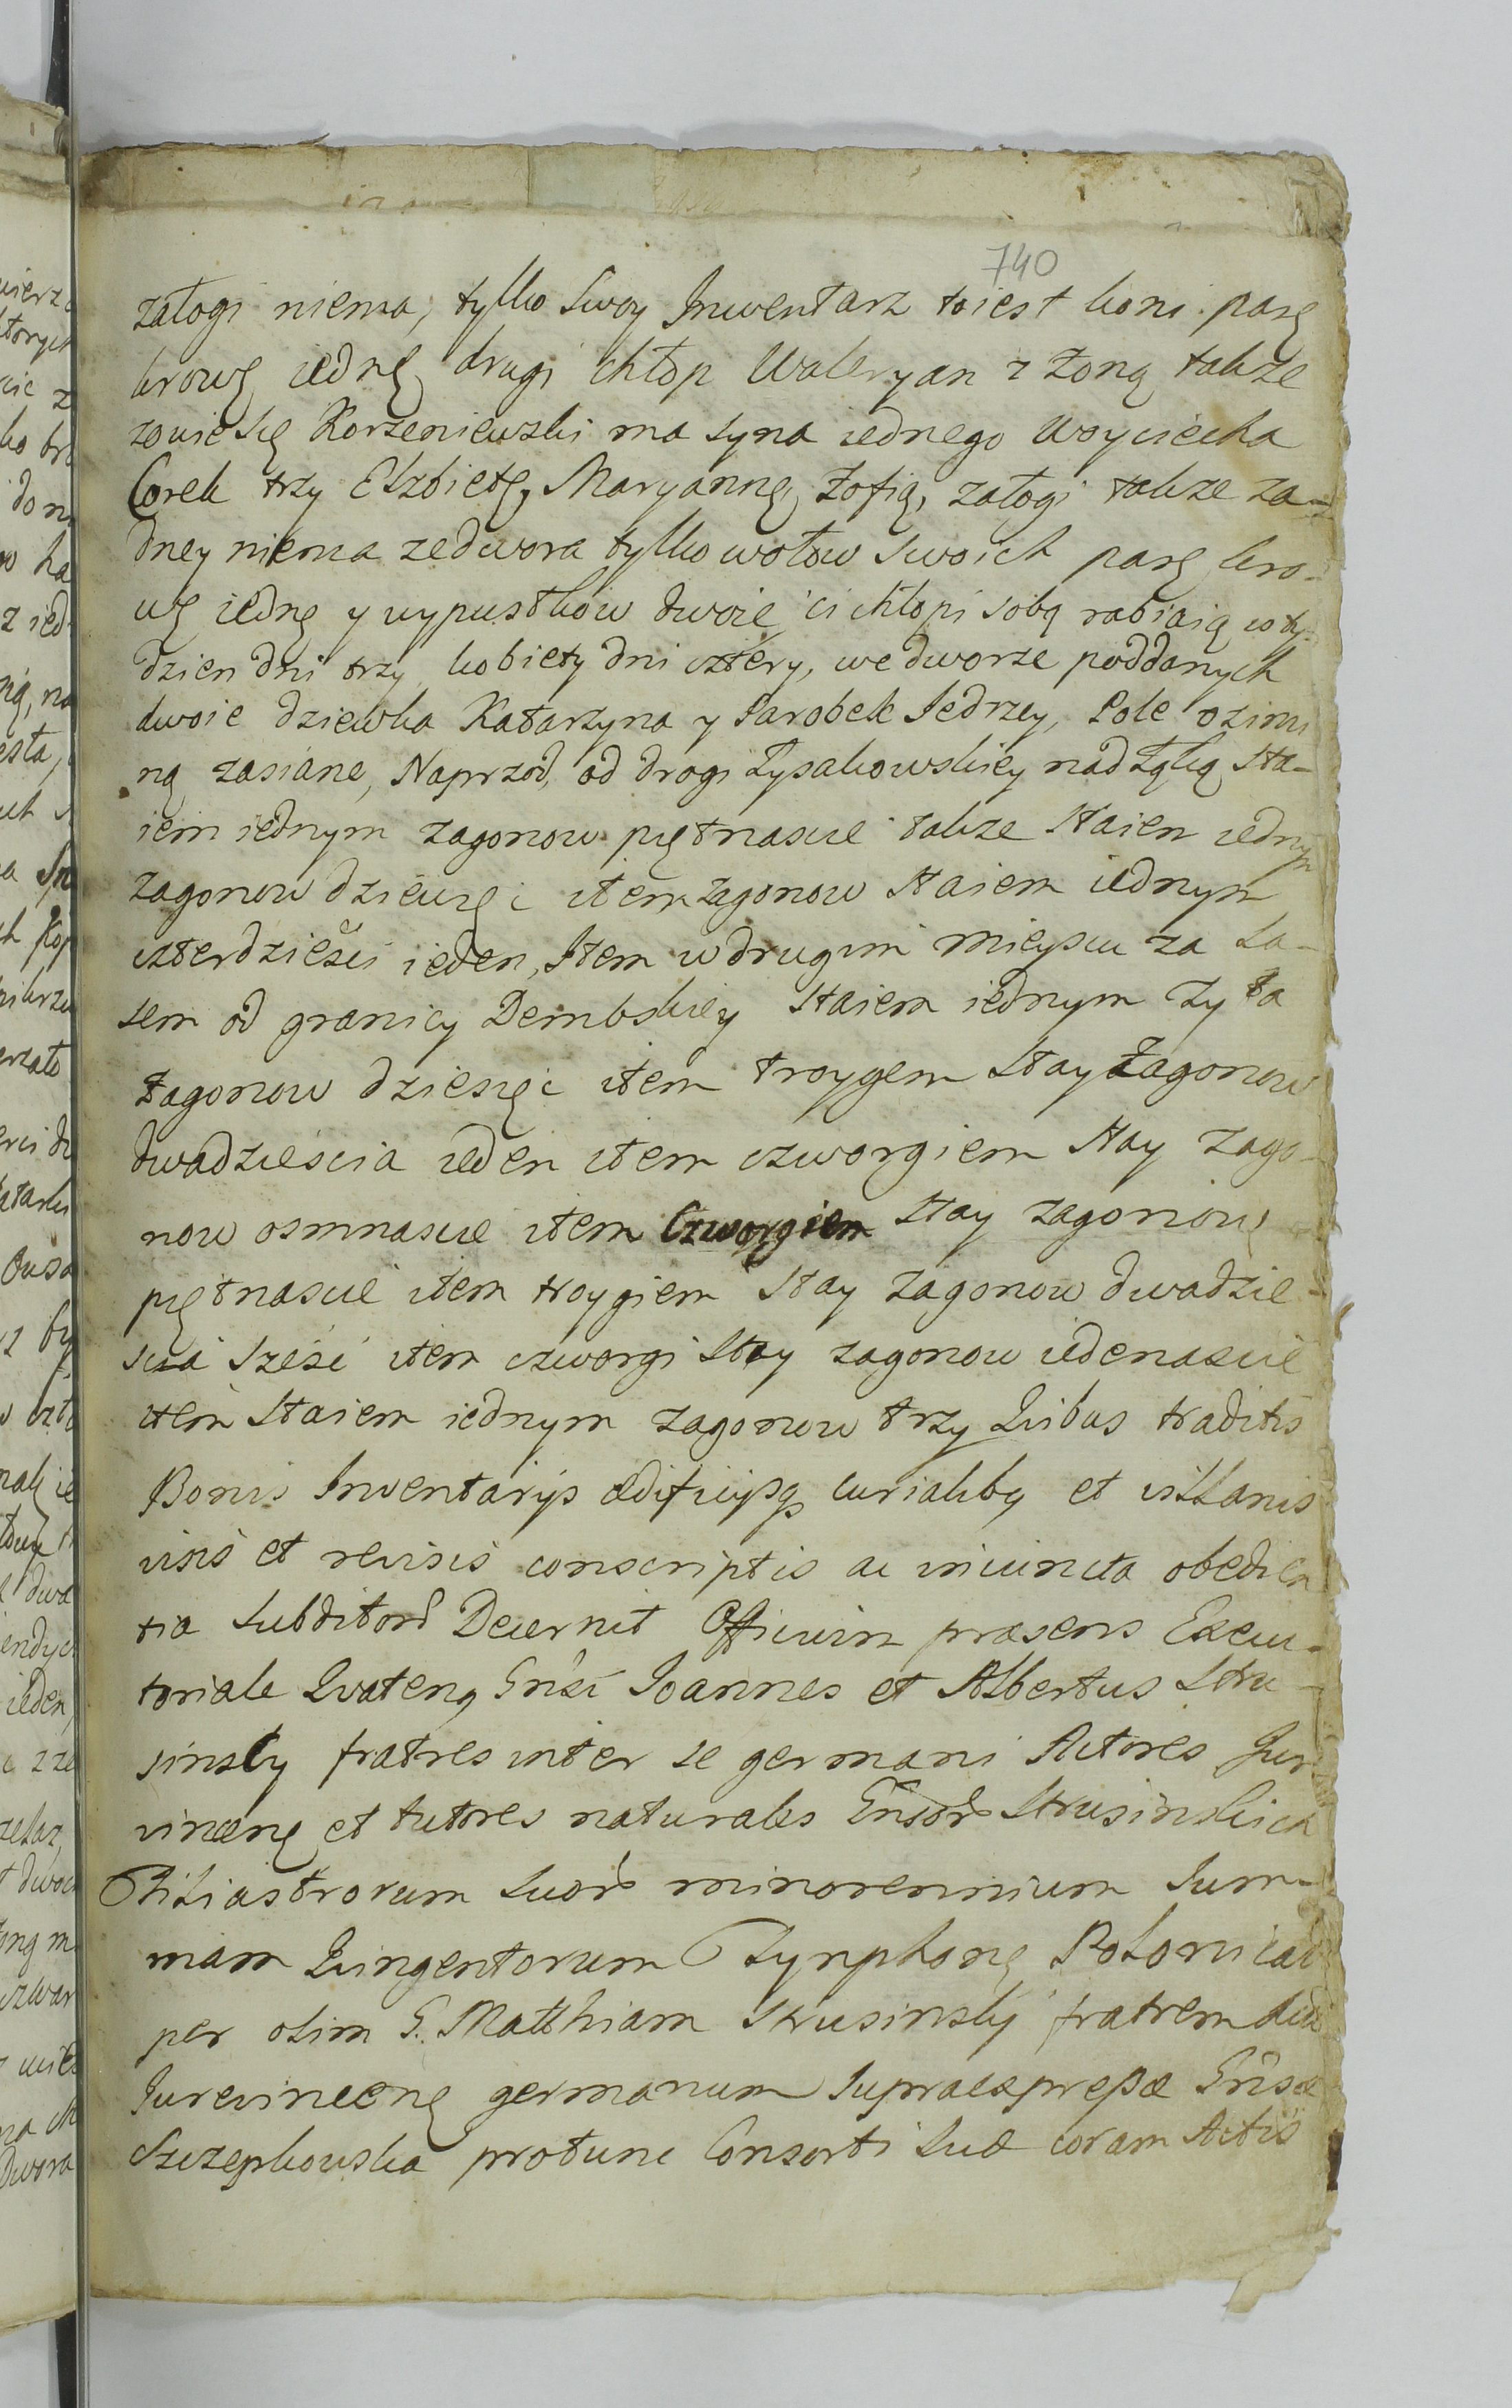 740
załogi niema, tylko swoy Inwentarz toiest koni parę
krowę iednę drugi chłop Waleryan z żoną także
zowie się Korzeniewski ma syna iednego Woyciecha
Corek trzy Elzbietę, Maryannę, Zofią, załogi takze za-
dney niema zedwora tylko wołow swoich parę kro-
wę iednę y wypustkow dwoie ci chłopi sobą robiaią w ty-
dzien dni trzy kobiety dni cztery, we dworze poddanych
dwoie dziewka Katarzyna y Parobek Jędrzey, Pole ozimi
ną zasiane, Naprzod, od drogi Łysakowskiey nad Łąką sta-
iem iednym zagonow piętnascie takze staien iednym
zagonow dziewięc item zagonow staiem iednym
czterdzieści ieden, Item w drugim mieyscu za La-
sem od granicy Dembskiey staiem iednym zyta
zagonow dziesięc item troygem stay zagonow
dwadzieścia ieden item czworgiem stay zago-
now osmnascie item Czworgiem stay zagonow
piętnascie item troygiem stay zagonow dwadzie-
scia sześć item czworgi stay zagonow iedenascie
item staiem iednym zagonow trzy Quibus traditis
Bonis Inventarijs ædificijsq curialibq et villanis
visis et revisis conscriptis ac iniuncta obedien
tia subditorũ Decernit Officium præsens Execu-
toriale Quatenq Gnsi Joannes et Albertus Stru-
sinscy fratres inter se germani Actores Jur
vincenę et tutores naturales Gnsorũ Strusinskich
Filiastrorum suorũ minorennium sum-
mam Quingentorum Tynphonę Polonical
per olim G. Matthiam Strusinsky fratrem sui
Jurevincenę germanum supraexpressæ Gnsæ
Szczepkowska protunc Consorti suæ coram Actis